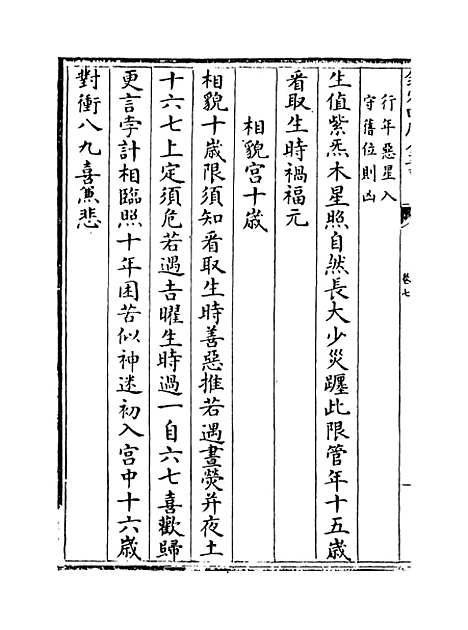 行年惡星入
守舊位則凶
生值紫炁木星照自然長大少災躔此限管年十五歲
看取生時禍福元
相貌宮十歲
相貌十歲限須知看取生時善惡推若遇晝熒并夜土
十六七上定須危若遇吉曜生時過一自六七喜歡歸
更言孛計相臨照十年困苦似神迷初入宮中十六歲
對衝八九喜兼悲
卷七